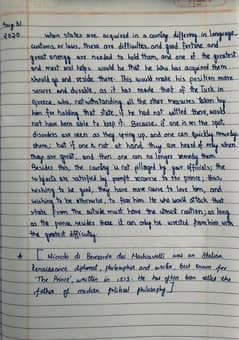 Aug 31
2020
When states are acquired in a country differing in language,
customs, or laws, there are difficulties, and good fortune and
great energy are needed to hold them, and one of the greatest
and most real helps would be that he who has acquired them
should go and reside there. This would make his position more
secure and durable, as it has made that of the Turk in
Greece, who, notwithstanding all the other measures taken by
him for holding that state, if he had not settled there, would
not have been able to keep it. Because, if one is on the spot,
disorders are seen as they spring up, and one can quickly remedy
them; but if one is not at hand, they are heard of only when
they are great, and then one can no longer remedy them.
Besides this, the country is not pillaged by your officials; the
subjects are satisfied by prompt recourse to the prince; thus,
wishing to be good, they have more cause to love him, and
wishing to be otherwise, to fear him. He who would attack that
state from the outside must have the utmost caution; as long
as the prince resides there it can only be wrested from him with
the greatest difficulty.
* [ Niccolò di Bernardo dei Machiavelli was an Italian
Renaissance diplomat, philosopher and writer, best known for
'The Prince', written in 1513. He has often been called the
father of modern political philosophy ]